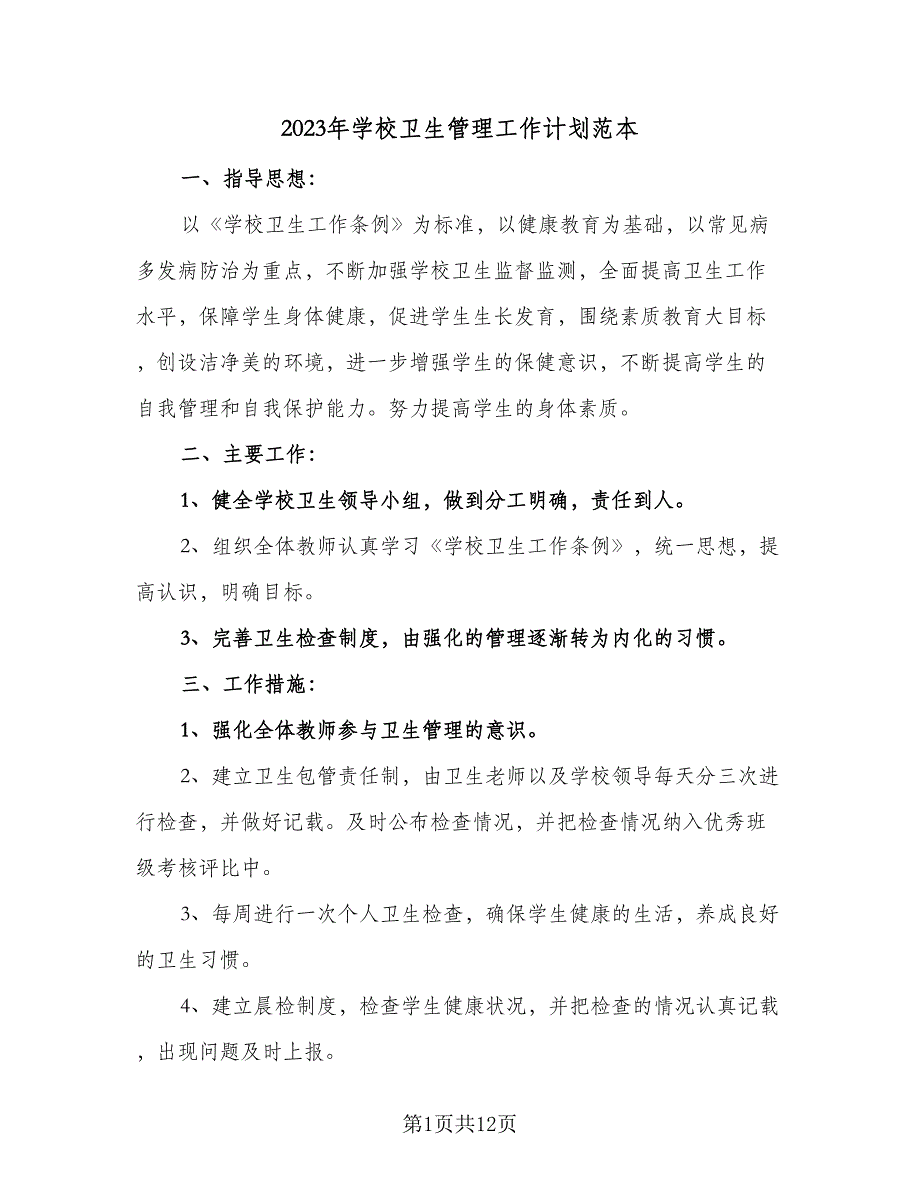 2023年学校卫生管理工作计划范本
一、指导思想：
以《学校卫生工作条例》为标准，以健康教育为基础，以常见病
多发病防治为重点，不断加强学校卫生监督监测，全面提高卫生工作
水平，保障学生身体健康，促进学生生长发育，围绕素质教育大目标
，创设洁净美的环境，进一步增强学生的保健意识，不断提高学生的
自我管理和自我保护能力。努力提高学生的身体素质。
二、主要工作：
1、健全学校卫生领导小组，做到分工明确，责任到人。
2、组织全体教师认真学习《学校卫生工作条例》，统一思想，提
高认识，明确目标。
3、完善卫生检查制度，由强化的管理逐渐转为内化的习惯。
三、工作措施：
1、强化全体教师参与卫生管理的意识。
2、建立卫生包管责任制，由卫生老师以及学校领导每天分三次进
行检查，并做好记载。及时公布检查情况，并把检查情况纳入优秀班
级考核评比中。
3、每周进行一次个人卫生检查，确保学生健康的生活，养成良好
的卫生习惯。
4、建立晨检制度，检查学生健康状况，并把检查的情况认真记载
，出现问题及时上报。
第1页共12页